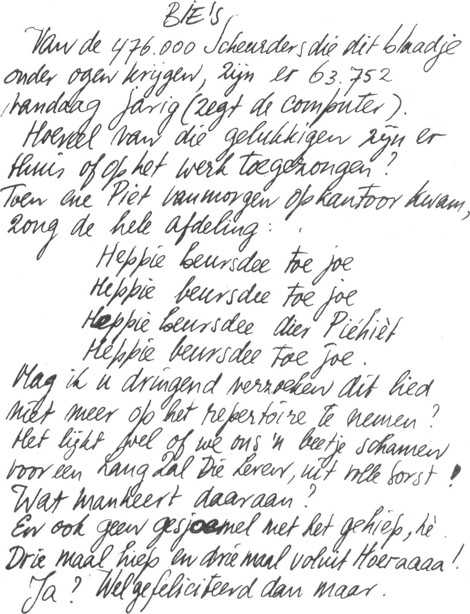 BIE'S
Van de 476.000 Scheurders die dit blaadje
onder ogen krijgen, zijn er 63.752
vandaag jarig (zegt de computer).
Hoeveel van die gelukkigen zijn er
thuis of op het werk toegezongen?
Toen ene Piet vanmorgen op kantoor kwam,
zong de hele afdeling:
Heppie beursdee toe joe
Heppie beursdee toe joe
Heppie beursdee dier Piehiet
Heppie beursdee toe joe.
Mag ik u dringend verzoeken dit lied
niet meer op het repertoire te nemen?
Het lijkt wel of we ons 'n beetje schamen
voor een Lang Zal Die Leven, uit volle borst!
Wat mankeert daaraan?
En ook geen gesjoemel met het gehiep, hè.
Drie maal hiep en drie maal voluit Hoeraaaa!
Ja? Wel gefeliciteerd dan maar.